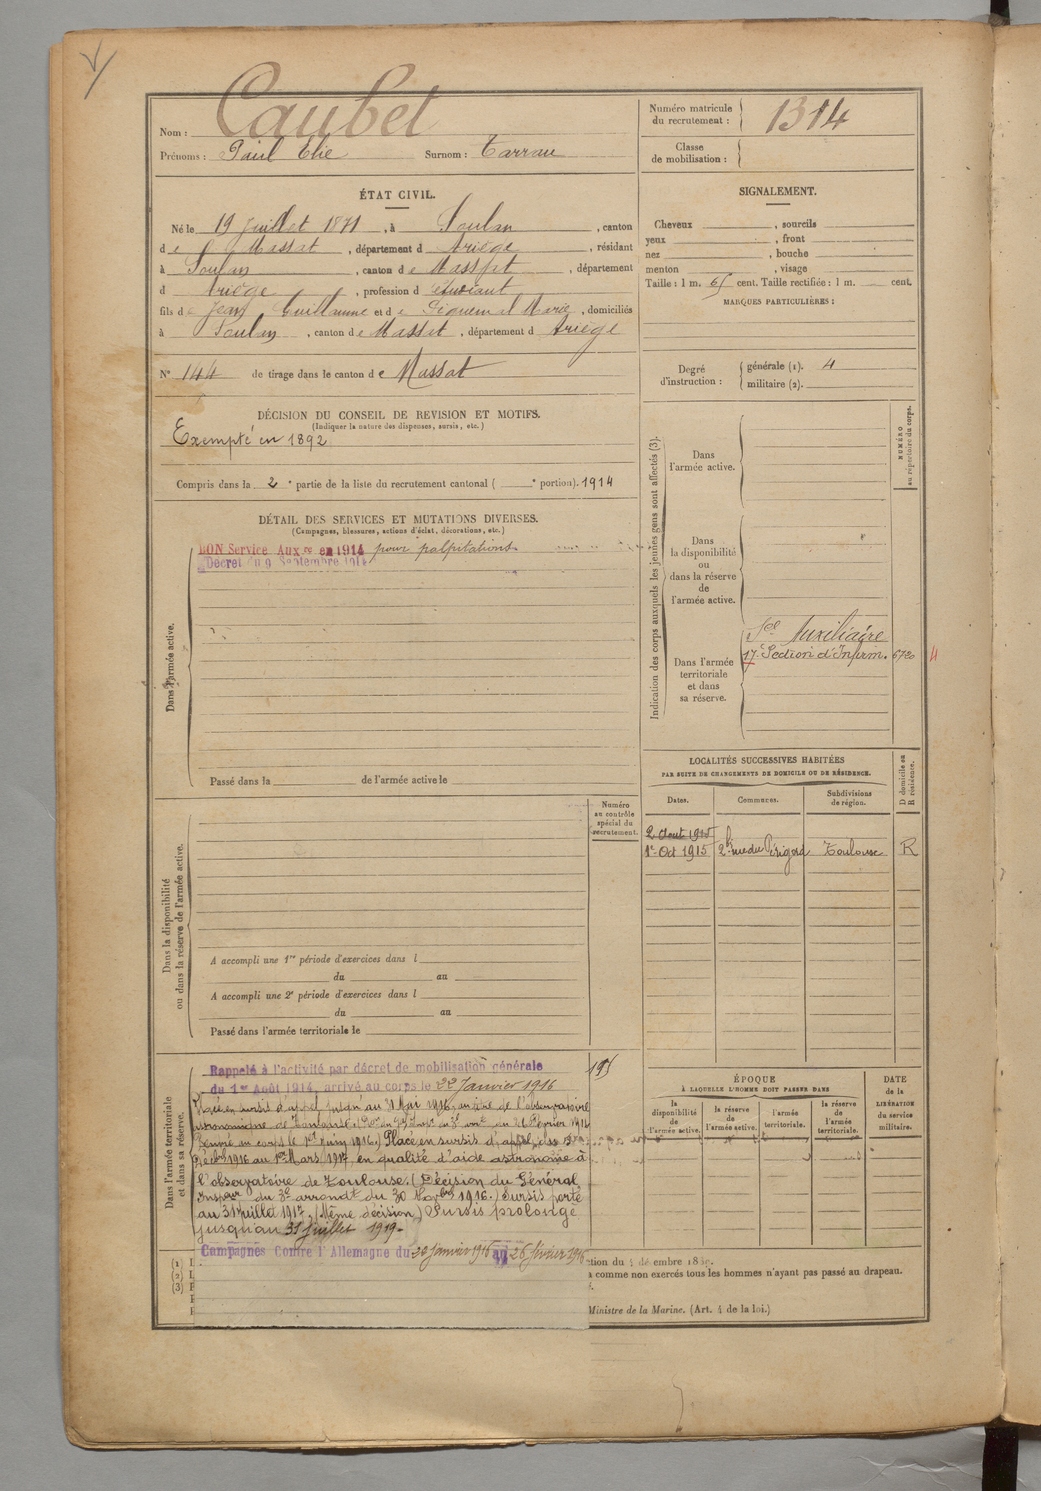 Nom : Caubet
Prénoms : Paul Elie Surnom : Tarrau
Numéro matricule
du recrutement : 1314
Classe
de mobilisation :
ÉTAT CIVIL.
Né le 19 Juillet 1871, à Soulan, canton
de Massat, département d Ariège, résidant
à Soulan, canton de Massat, département
d Ariège, profession d étudiant
fils de Jean Guillaume et de Marie, domiciliés
à Soulan, canton de Massat, département d Ariège
N° 144 de tirage dans le canton de Massat
SIGNALEMENT.
Cheveux , sourcils
yeux , front
nez , bouche
menton , visage
Taille : 1 m. 65 cent. Taille rectifiée : 1 m. cent.
MARQUES PARTICULIÈRES :
Degré
d'instruction :
générale (1). 4
militaire (2).
DÉCISION DU CONSEIL DE REVISION ET MOTIFS.
(Indiquer la nature des dispenses, sursis, etc.)
Exempté en 1892
Compris dans la 2e partie de la liste du recrutement cantonal ( e portion). 1914
DÉTAIL DES SERVICES ET MUTATIONS DIVERSES.
(Campagnes, blessures, actions d'éclat, décorations, etc.)
BON Service Auxre en 1914 pour palpitations
Décret du 9 Septembre 1914
Dans l'armée active.
Passé dans la de l'armée active le
Indication des corps auxquels les jeunes gens sont affectés (3).
NUMÉRO
au répertoire du corps.
Dans
l'armée active.
Dans
la disponibilité
ou
dans la réserve
de
l'armée active.
Dans l'armée
territoriale
et dans
sa réserve.
Sce Auxiliaire
17e Section d'Infirm. 6720 4
LOCALITÉS SUCCESSIVES HABITÉES
PAR SUITE DE CHANGEMENTS DE DOMICILE OU DE RÉSIDENCE.
Dates. Communes. Subdivisions
de région.
D domicile ou
R résidence.
2 Aout 1915
1er Oct 1915 rue du Périgord Toulouse R
Numéro
au contrôle
spécial du
recrutement.
Dans la disponibilité
ou dans la réserve de l'armée active.
A accompli une 1re période d'exercices dans l
du au
A accompli une 2e période d'exercices dans l
du au
Passé dans l'armée territoriale le
Dans l'armée territoriale
et dans sa réserve.
Rappelé à l'activité par décret de mobilisation générale
du 1er Août 1914, arrivé au corps le 22 Janvier 1916
en sursis d'appel jusqu'au 31 Mai 1916, au titre de l'observatoire
astronomique de 26 Février 1916
au corps le 1er Juin 1916.) Placé en sursis d'appel du
1916 au 1er Mars 1917 en qualité d'aide astronome à
l'observatoire de Toulouse. (Décision du Général
Inspeur du 3e arrondt du 30 Novbre 1916.) Sursis porté
au 31 juillet 1917. (Même décision) Sursis prolongé
jusqu'au 31 juillet 1919.
Campagnes Contre l'Allemagne du 22 janvier 1916 au 26 février 1916
ÉPOQUE
À LAQUELLE L'HOMME DOIT PASSER DANS
la
disponibilité
de
l'armée active.
la réserve
de
l'armée active.
l'armée
territoriale.
la réserve
de
l'armée
territoriale.
DATE
de la
LIBÉRATION
du service
militaire.
(1)
(2)
(3)
comme non exercés tous les hommes n'ayant pas passé au drapeau.
Ministre de la Marine. (Art. 4 de la loi.)